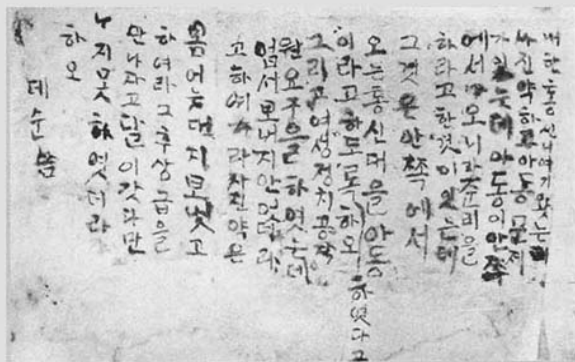 통신 여기왓는데
사진약하고아동문제
가잇는데 아동이안쪽
에서 오니가준리을
하라고한것이잇는데
그것은안쪽에서
오는통신대을아동
이라고하도록하오 하엿다고
그리고여성정치공작
원요구을하엿는데
업서보내지안엇데라
고하여 사진약은
하여라그후상급을
만나자고달이갓다만
누지못하엿더라
하오
데순씀